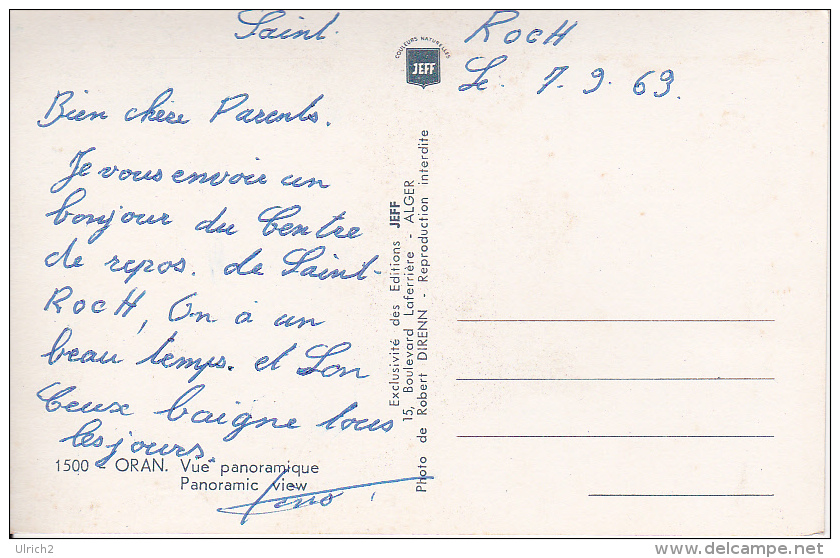 Saint. Roch
Le 7.9.69.
COULEURS NATURELLES
JEFF
Bien chère Parents.
Je vous envoir un
bonjour du Centre
de repos. de Saint-
Roch, On à un
beau temps. et Lon
ceux baigne tous
les jours.
1500 - ORAN. Vue panoramique
Panoramic view
Exclusivité des Editions JEFF
15, Boulevard Laferrière - ALGER
Photo de Robert DIRENN - Reproduction interdite
Ulrich2
www.delcampe.net